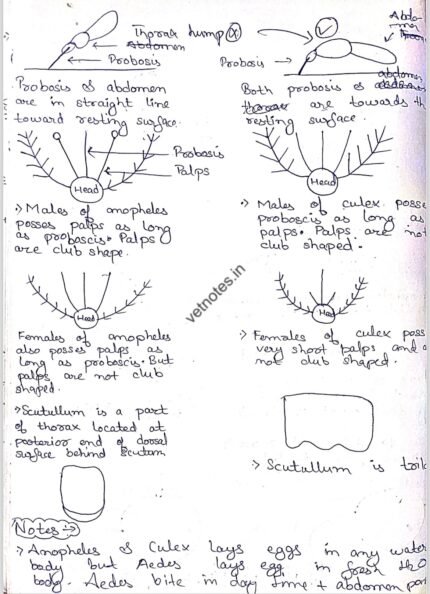 Thorax hump
abdomen
Probosis
Probosis & abdomen
are in straight line
toward resting surface.
Probosis
Palps
Head
-> Males of anopheles
posses palps as long
as proboscis. Palps
are club shape.
Head
Females of anopheles
also posses palps as
long as proboscis. But
palps are not club
shaped.
-> Scutullum is a part
of thorax located at
posterior end of dorsal
surface behind Scutum
Abdo-
men
Probosis
abdomen
Both probosis &
are towards th
resting surface.
Head
-> Males of culex posse
proboscis as long as
palps. Palps are not
club shaped.
Head
-> Females of culex poss
very shoot palps and a
not club shaped.
-> Scutullum is tril
vetnotes.in
Notes ->
-> Anopheles & Culex lays eggs in any water
body but Aedes lays egg in fresh H2O
body. Aedes bite in day time + abdomen